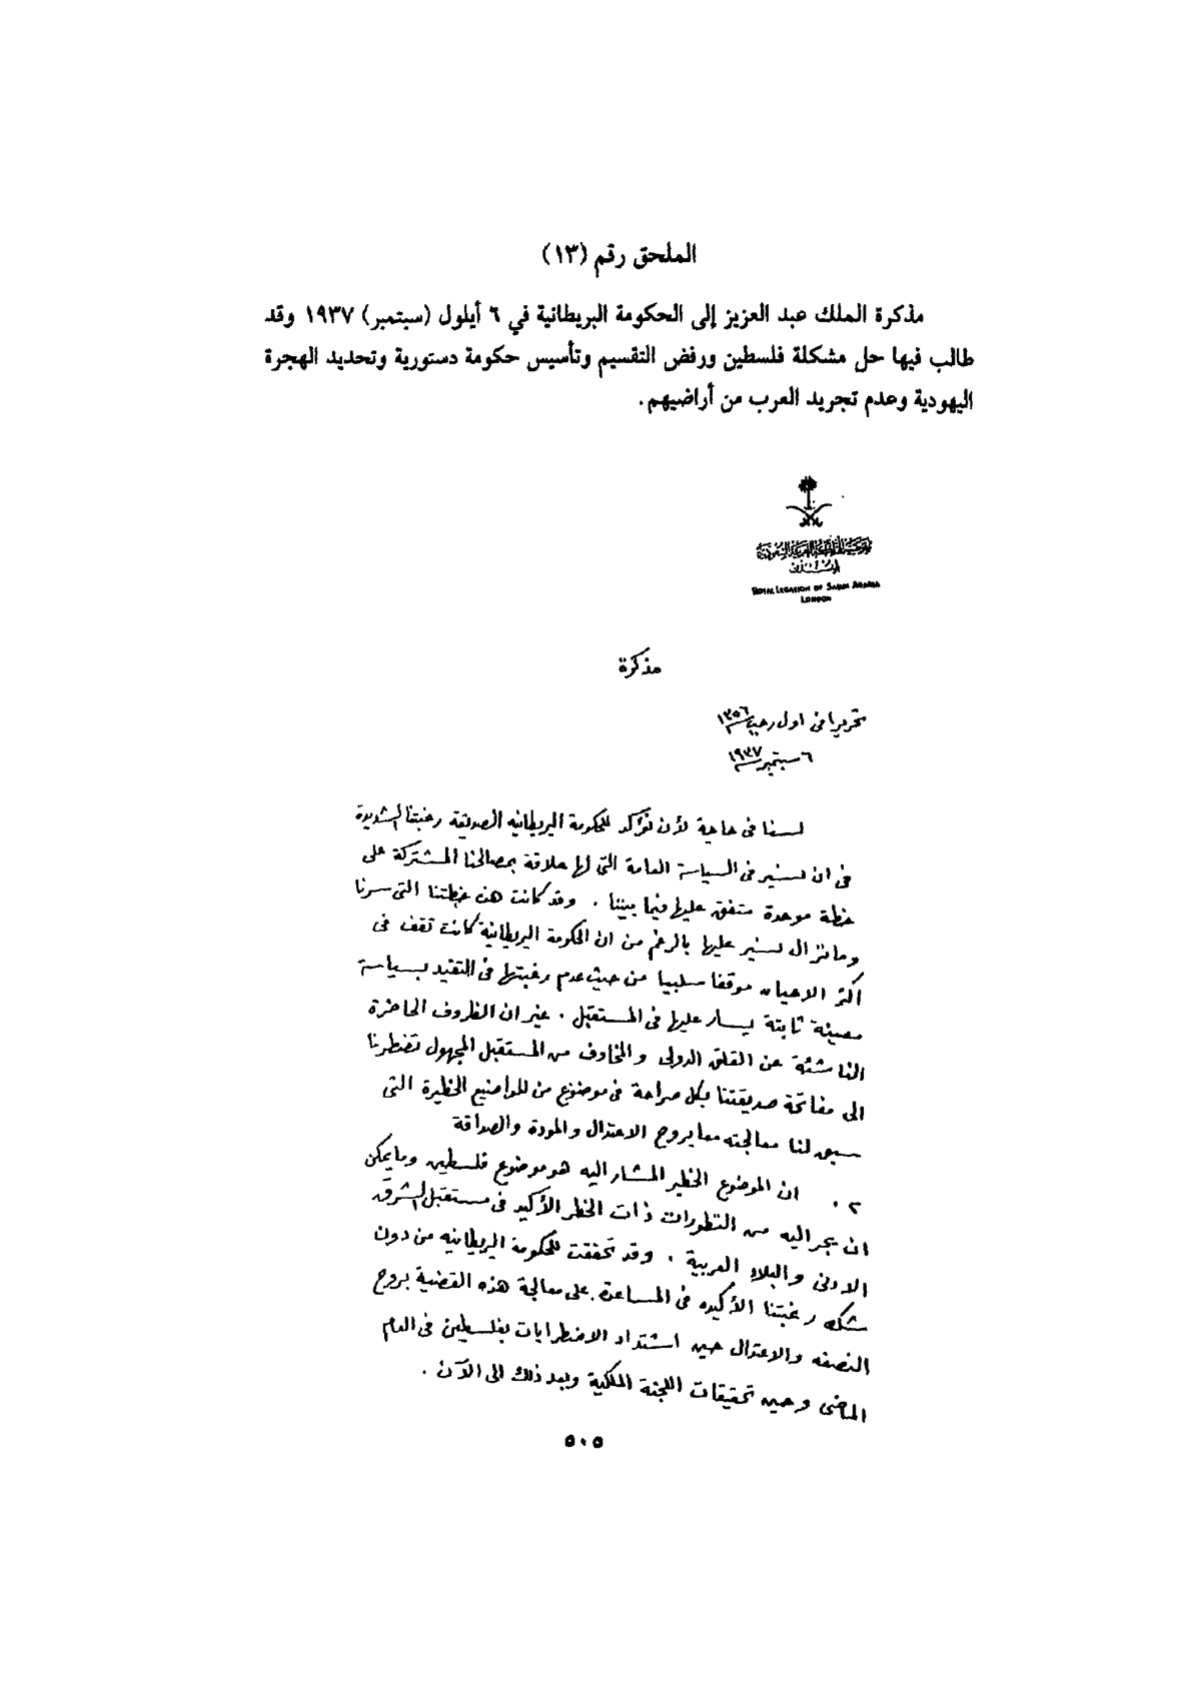 الملحق رقم (١٣)
مذكرة الملك عبد العزيز إلى الحكومة البريطانية في ٦ أيلول (سبتمبر) ١٩٣٧ وقد
طالب فيها حل مشكلة فلسطين ورفض التقسيم وتأسيس حكومة دستورية وتحديد الهجرة
اليهودية وعدم تجريد العرب من أراضيهم.
ROYAL LEGATION OF SAUDI ARABIA
LONDON
مذكرة
تحريرا في اول رجب ١٣٥٦
٦ سبتمبر ١٩٣٧
لسنا في حاجة لأن نؤكد للحكومة البريطانيه الصديقة رغبتنا الشديدة
في ان نسير في السياسة العامة التي لها علاقة بمصالحنا المشتركة على
خطة موحدة متفق عليها فيما بيننا . وقد كانت هذه خطتنا التي سرنا
وما نزال نسير عليها بالرغم من ان الحكومة البريطانية كانت تقف في
اكثر الاحيان موقفا سلبيا من حيث عدم رغبتها في التقيد بسياسة
معينة ثابتة يسار عليها في المستقبل . غير ان الظروف الحاضرة
الناشئة عن القلق الدولي والمخاوف من المستقبل المجهول تضطرنا
الى مفاتحة صديقتنا بكل صراحة في موضوع من المواضيع الخطيرة التي
سبق لنا معالجته معا بروح الاعتدال والمودة والصداقة
٢ . ان الموضوع الخطير المشار اليه هو موضوع فلسطين وما يمكن
ان يجر اليه من التطورات ذات الخطر الأكيد في مستقبل الشرق
الادنى والبلاد العربية . وقد تحققت للحكومة البريطانيه من دون
شك رغبتنا الأكيده في المساعدة على معالجة هذه القضية بروح
النصفه والاعتدال حين اشتداد الاضطرابات بفلسطين في العام
الماضي وحين تحقيقات اللجنة الملكية وبعد ذلك الى الآن .
٥٠٥